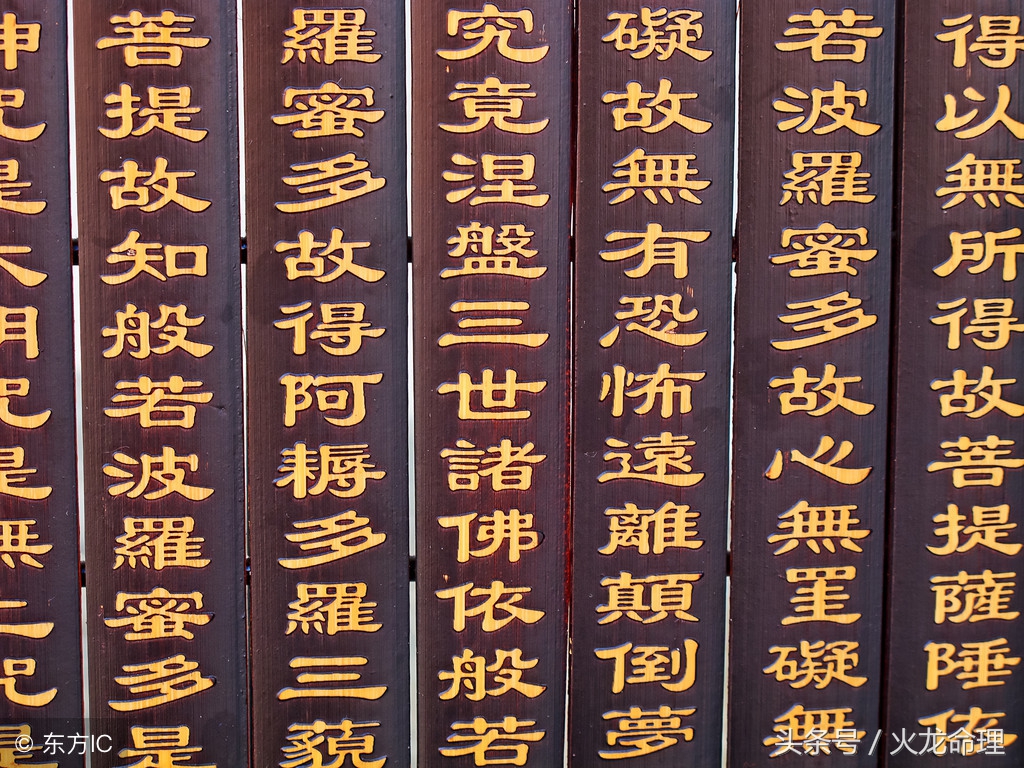 得以無所得故菩提薩陲依
若波羅蜜多故心無罣礙無
礙故無有恐怖遠離顛倒夢
究竟涅盤三世諸佛依般若
羅蜜多故得阿耨多羅三藐
菩提故知般若波羅蜜多是
神咒是大明咒是無上咒是
© 东方IC
头条号 / 火龙命理